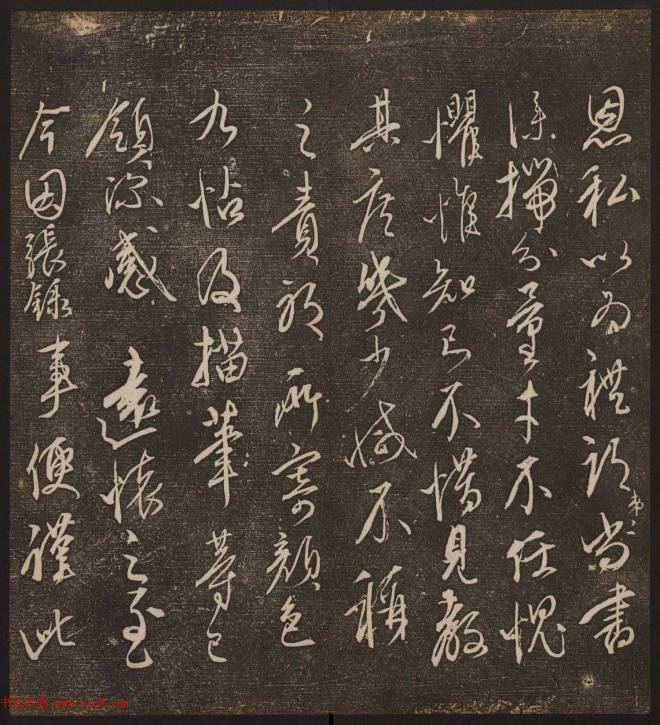 恩私以為禮部尚書
深揣分量才不任愧
懼惟知己不惜見教
其庶幾少減不稱
之責耶所寄顏色
九帖及描筆等已
領深感遠懷之至
今因張錄事便謹此